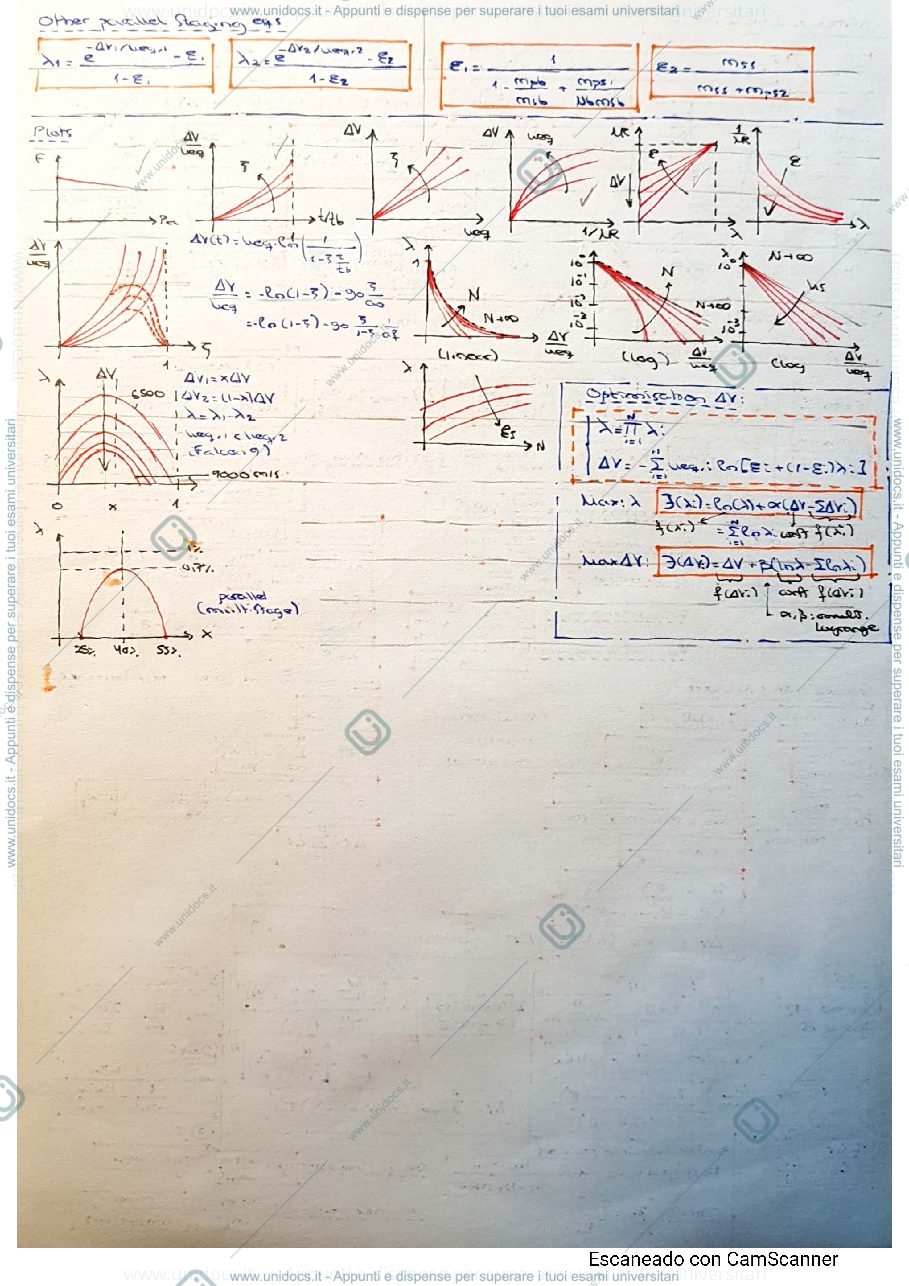 www.unidocs.it - Appunti e dispense per superare i tuoi esami universitari
Other parallel Staging eqs
λ1 = (e^(-ΔV1/ueq,1) - ε1) / (1-ε1)
λ2 = (e^(-ΔV2/ueq,2) - ε2) / (1-ε2)
ε1 = 1 / (1 - mpb/msb + mps1/Nbmsb)
ε2 = mss / (mss + mps2)
Plots
F
Pa
ΔV/ueq
ζ
t/tb
1
ΔV
ζ
ueq
ΔV
ueq
1/MR
MR
ε
ΔV
λ
1/MR
ε
λ
ΔV/ueq
1
ζ
ΔV(t) = ueq·ln(1/(1-ζ t/tb))
ΔV/ueq = -ln(1-ζ) - g0 ζ/a0
= -ln(1-ζ) - g0 ζ/(1-ζ) 1/af
λ
1
N
N→∞
ΔV/ueq
(linear)
10^0
10^-1
N
N→∞
(log)
ΔV/ueq
λ
10^0
N→∞
10^-3
(log
ΔV/ueq
λ
ΔV
6500
9000 m/s
0
x
1
ΔV1 = xΔV
ΔV2 = (1-x)ΔV
λ = λ1·λ2
ueq,1 < ueq,2
(Falcon 9)
λ
εs
N
Optimisation ΔV:
λ = ∏ᵢ₌₁ᴺ λi
ΔV = -Σ ueq,i ln[εi + (1-εi)λi]
Max: λ
J(λi) = ln(λ) + α(ΔV - ΣΔVi)
f(λi)
= Σᵢ₌₁ᴺ ln λi
const
f(λi)
Max ΔV:
J(ΔVi) = ΔV + β(lnλ - Σlnλi)
f(ΔVi)
const
f(ΔVi)
α, β: mult.
Lagrange
λ
1%
0.7%
parallel
(multistage)
x
25%
40%
55%
Escaneado con CamScanner
www.unidocs.it - Appunti e dispense per superare i tuoi esami universitari